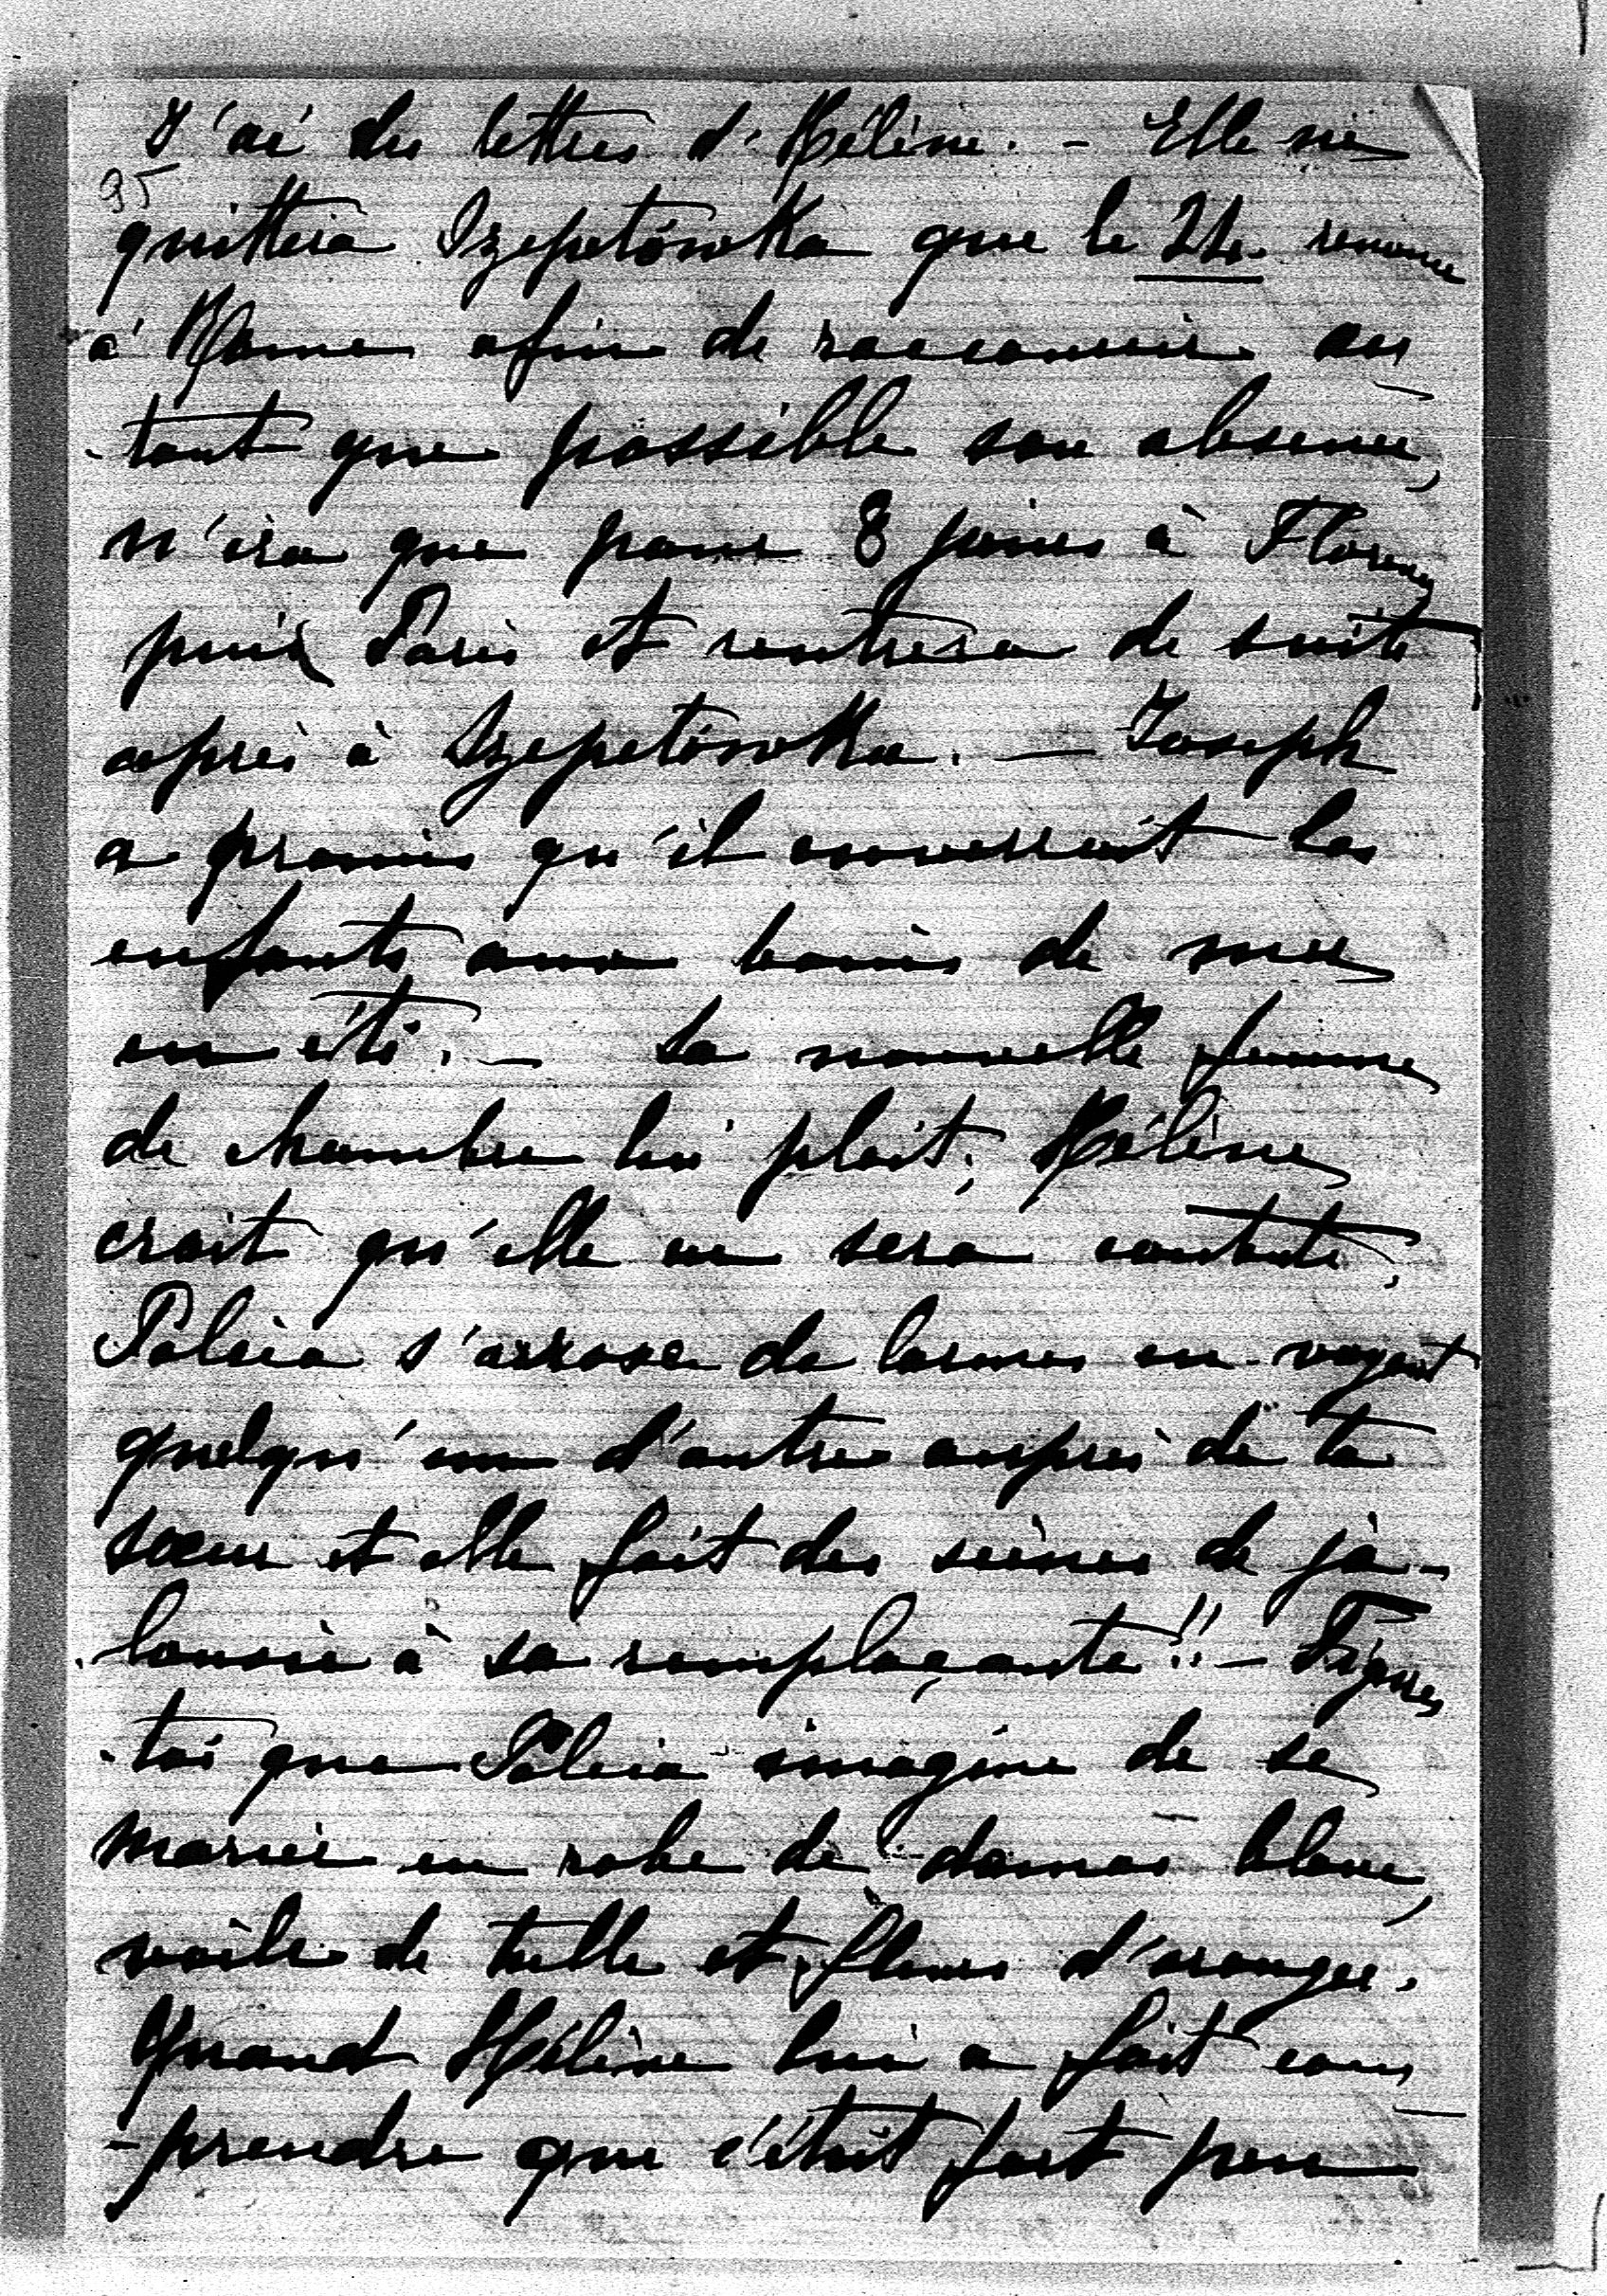 J'ai des lettres d'Hélène. - Elle ne
95
quittera Szepetówka que le 24. renonce
à Rome afin de raccourcir au
-tant que possible son absence,
n'ira que pour 8 jours à Florence
puis Paris et rentrera de suite
après à Szepetówka. — Joseph
a promis qu'il enverrait les
enfants aux bains de mer
en été. — La nouvelle femme
de chambre lui plait; Hélène
croit qu'elle en sera contente;
Palcia s'arrose de larmes en voyant
quelqu'un d'autre auprès de ta
sœur et elle fait des scènes de ja-
-lousie à sa remplaçante!! - Figure
-toi que Palcia imagine de se
marier en robe de damas blanc,
voile de tulle et fleurs d'oranger.
Quand Hélène lui a fait com
-prendre que c'était fort peu